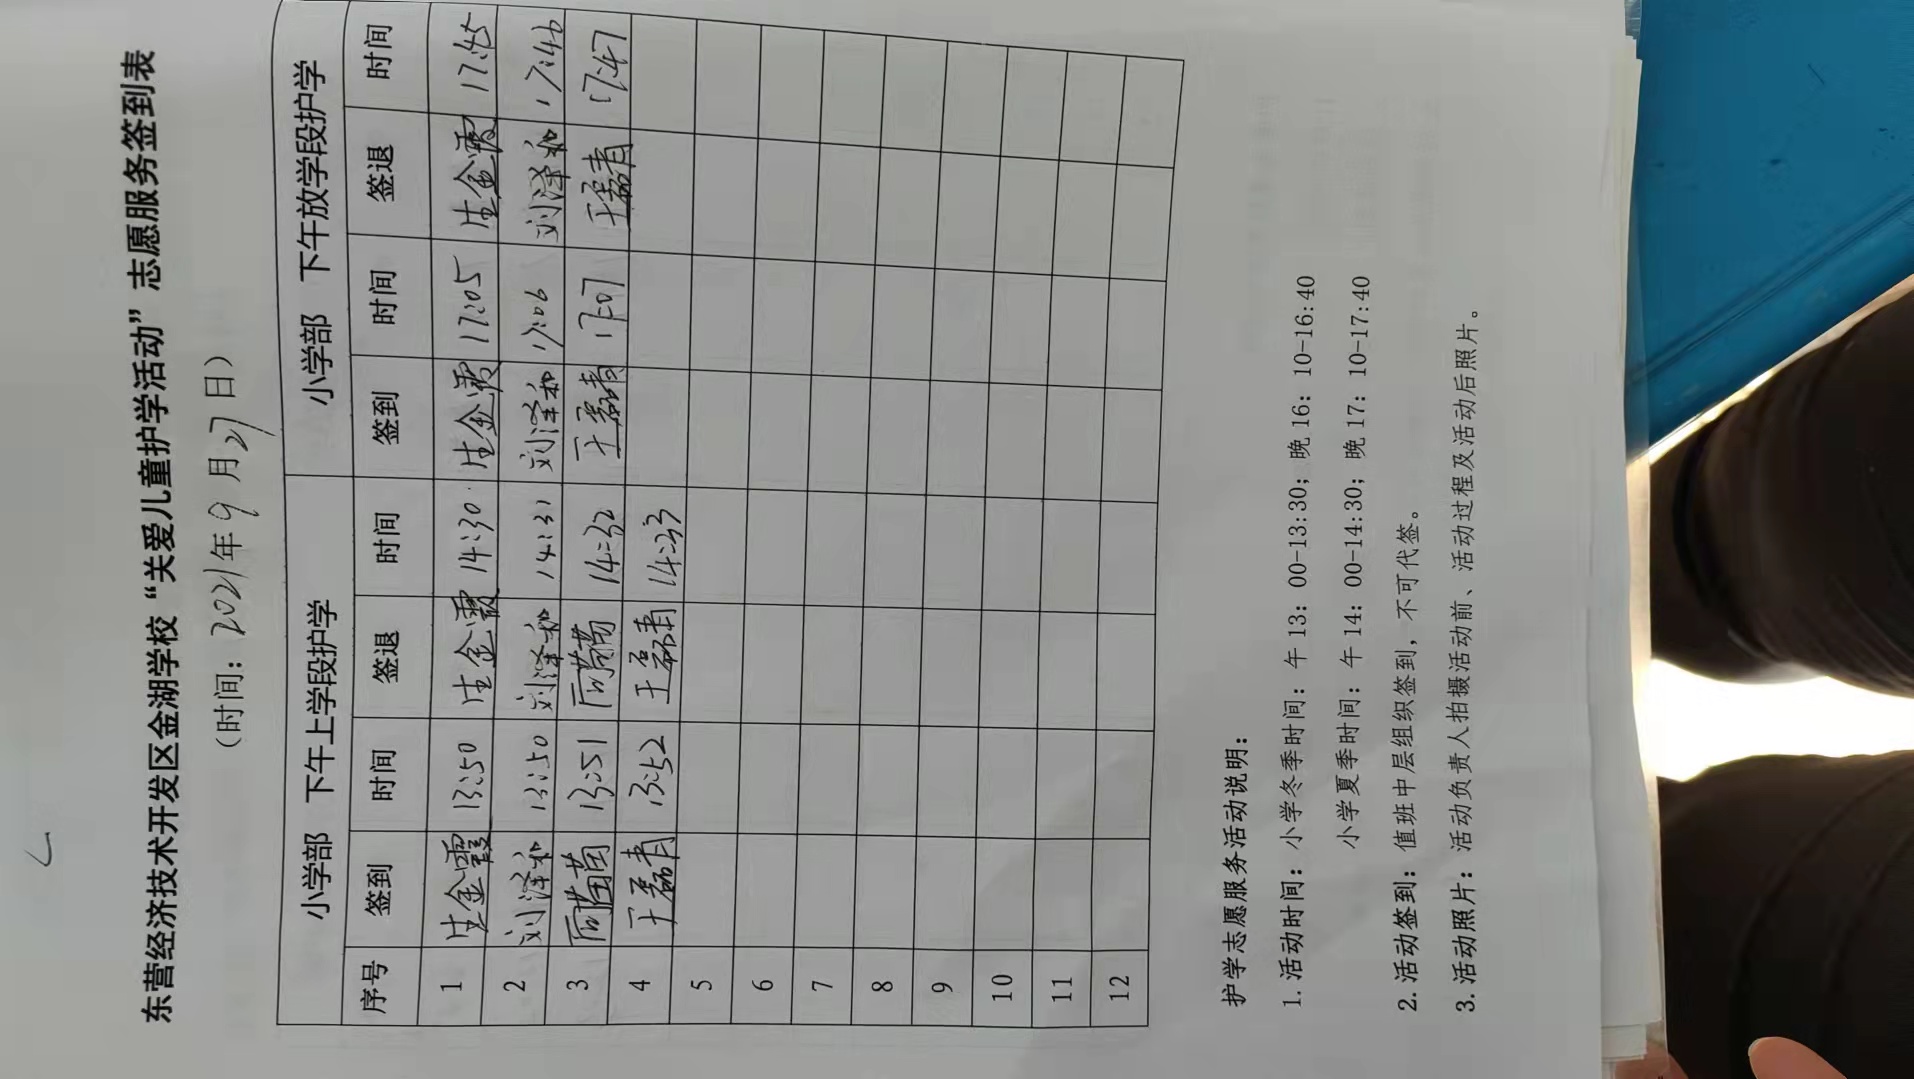 东营经济技术开发区金湖学校“关爱儿童护学活动”志愿服务签到表
（时间：2021年9月27日）
小学部 下午上学段护学 小学部 下午放学段护学
序号 签到 时间 签退 时间 签到 时间 签退 时间
1 生金霞 13:50 生金霞 14:30 生金霞 17:05 生金霞 17:45
2 刘泽和 13:50 刘泽和 14:31 刘泽和 17:06 刘泽和 17:46
3 13:51 14:32 王磊青 17:07 王磊青 17:47
4 王磊青 13:52 王磊青 14:33
5
6
7
8
9
10
11
12
护学志愿服务活动说明：
1.活动时间：小学冬季时间：午 13：00-13:30；晚 16：10-16:40
小学夏季时间：午 14：00-14:30；晚 17：10-17:40
2.活动签到：值班中层组织签到，不可代签。
3.活动照片：活动负责人拍摄活动前、活动过程及活动后照片。